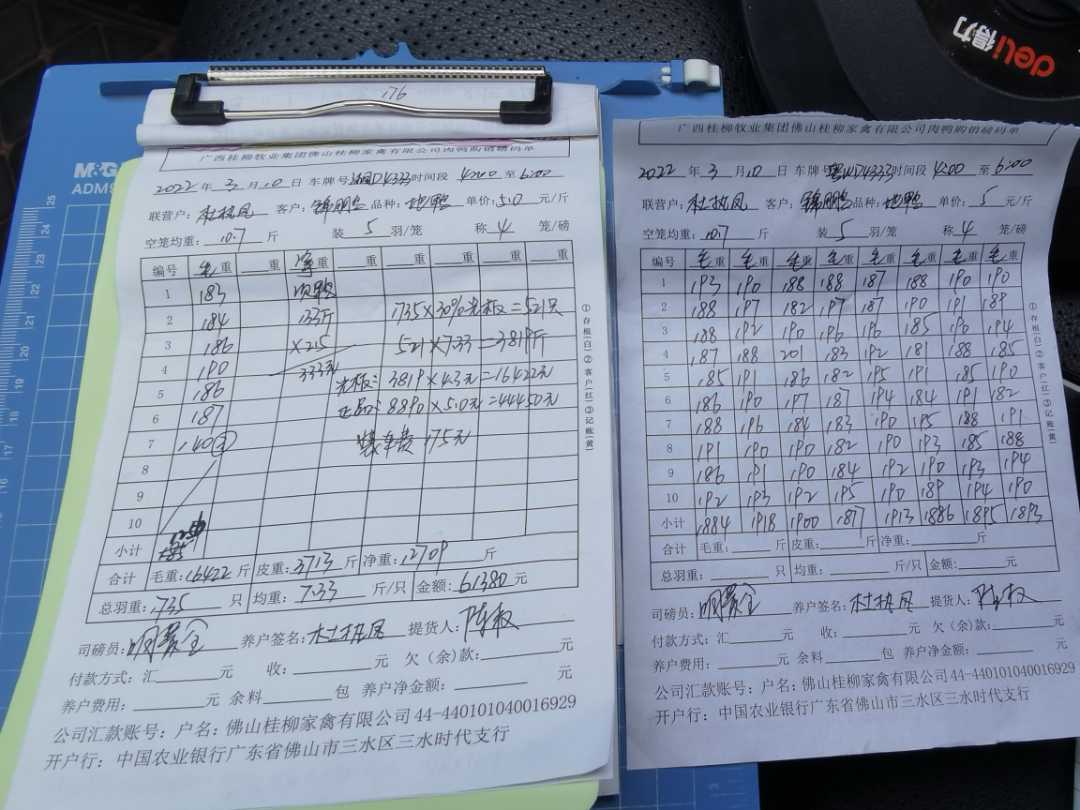 deli得力
M&G
176
广西桂柳牧业集团佛山桂柳家禽有限公司肉鸭购销磅码单
2022年3月10日 车牌号 D4333 时间段 4:00 至 6:00
联营户:杜执凤 客户:锦鹏 品种:地鸭 单价:5.0元/斤
空笼均重:10.7斤 装5羽/笼 称4笼/磅
编号 毛重 重 净重 重 重 重 重 重
1 183 次鸭
2 184 133斤 1735×30%光板=521只
3 186 ×2.5 521×7.33=3819斤
4 190 333元 光板:3819×4.3元=16422元
5 186 正品:8890×5.0元=44450元
6 187 装车费 175元
7 140③
8
9
10
小计 1256
合计 毛重:16422斤 皮重:3713斤 净重:12709斤
总羽重:1735只 均重:7.33斤/只 金额:61380元
司磅员: 养户签名:杜执凤 提货人:陈权
付款方式:汇元 收:元 欠(余)款:元
养户费用:元 余料包 养户净金额:元
公司汇款账号:户名:佛山桂柳家禽有限公司44-440101040016929
开户行:中国农业银行广东省佛山市三水区三水时代支行
①存根(白)②客户(红)③记账(黄)
广西桂柳牧业集团佛山桂柳家禽有限公司肉鸭购销磅码单
2022年3月10日 车牌号 D4333 时间段 4:00 至 6:00
联营户:杜执凤 客户:锦鹏 品种:地鸭 单价:5元/斤
空笼均重:10.7斤 装5羽/笼 称4笼/磅
编号 毛重 毛重 毛重 毛重 毛重 毛重 毛重 毛重
1 193 190 188 188 187 188 190 190
2 188 197 182 197 187 190 191 189
3 188 192 190 196 196 185 190 194
4 187 188 201 183 192 181 188 185
5 185 191 186 182 195 191 185 190
6 186 190 197 187 194 184 191 182
7 188 196 184 183 190 195 188 191
8 191 190 190 182 190 193 185 188
9 186 191 190 184 192 190 193 194
10 192 193 192 195 190 189 194 190
小计 1884 1918 1900 1877 1913 1886 1895 1893
合计 毛重:斤 皮重:斤 净重:斤
总羽重:只 均重:斤/只 金额:元
司磅员: 养户签名:杜执凤 提货人:陈权
付款方式:汇元 收:元 欠(余)款:元
养户费用:元 余料包 养户净金额:元
公司汇款账号:户名:佛山桂柳家禽有限公司44-440101040016929
开户行:中国农业银行广东省佛山市三水区三水时代支行
①存根(白)②客户(红)③记账(黄)